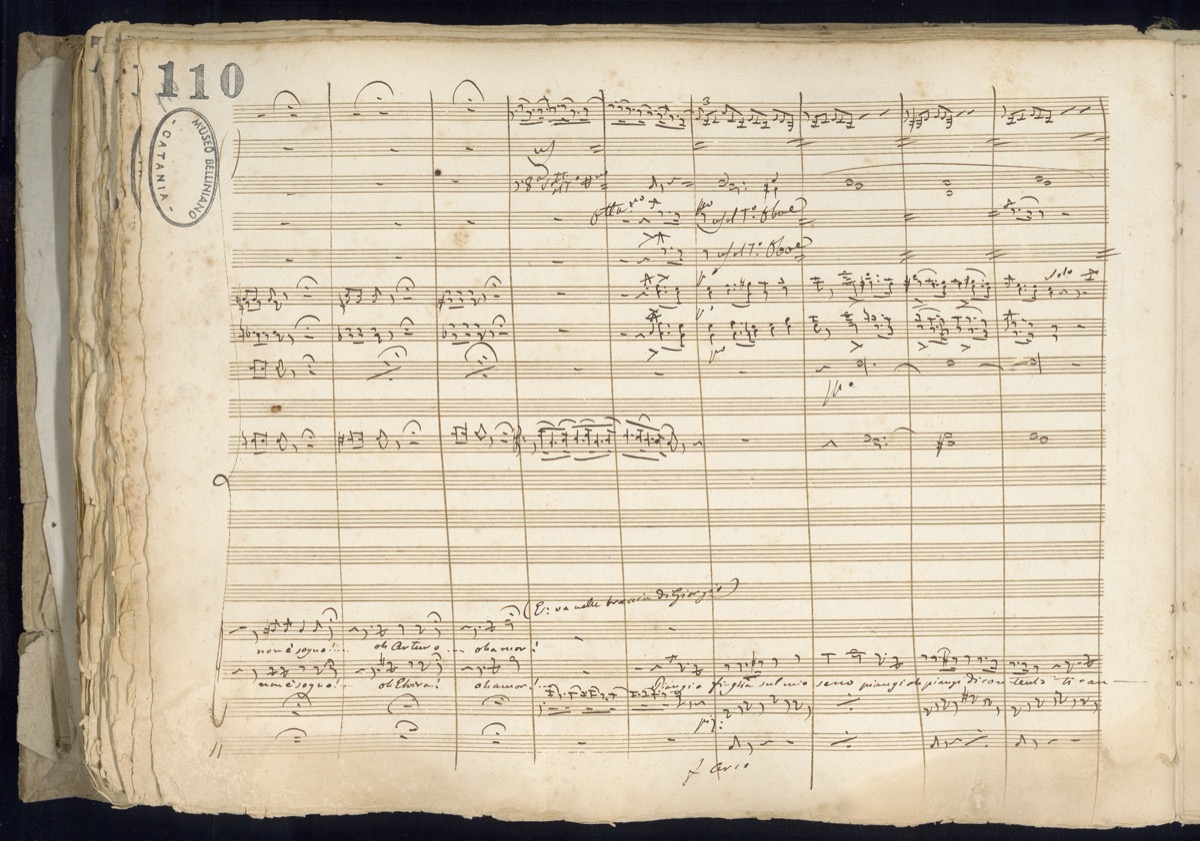 110
MUSEO BELLINIANO
- CATANIA -
3
8va
col 1º Oboe
col 1º Oboe
solo
(E: va nelle braccia di Giorgio)
non è sogno!... oh Arturo.... oh amor!
non è sogno!... oh Elvira! oh amor!...
Piangi o figlia sul mio seno piangi oh piangi di contento ti can
piz:
Arco